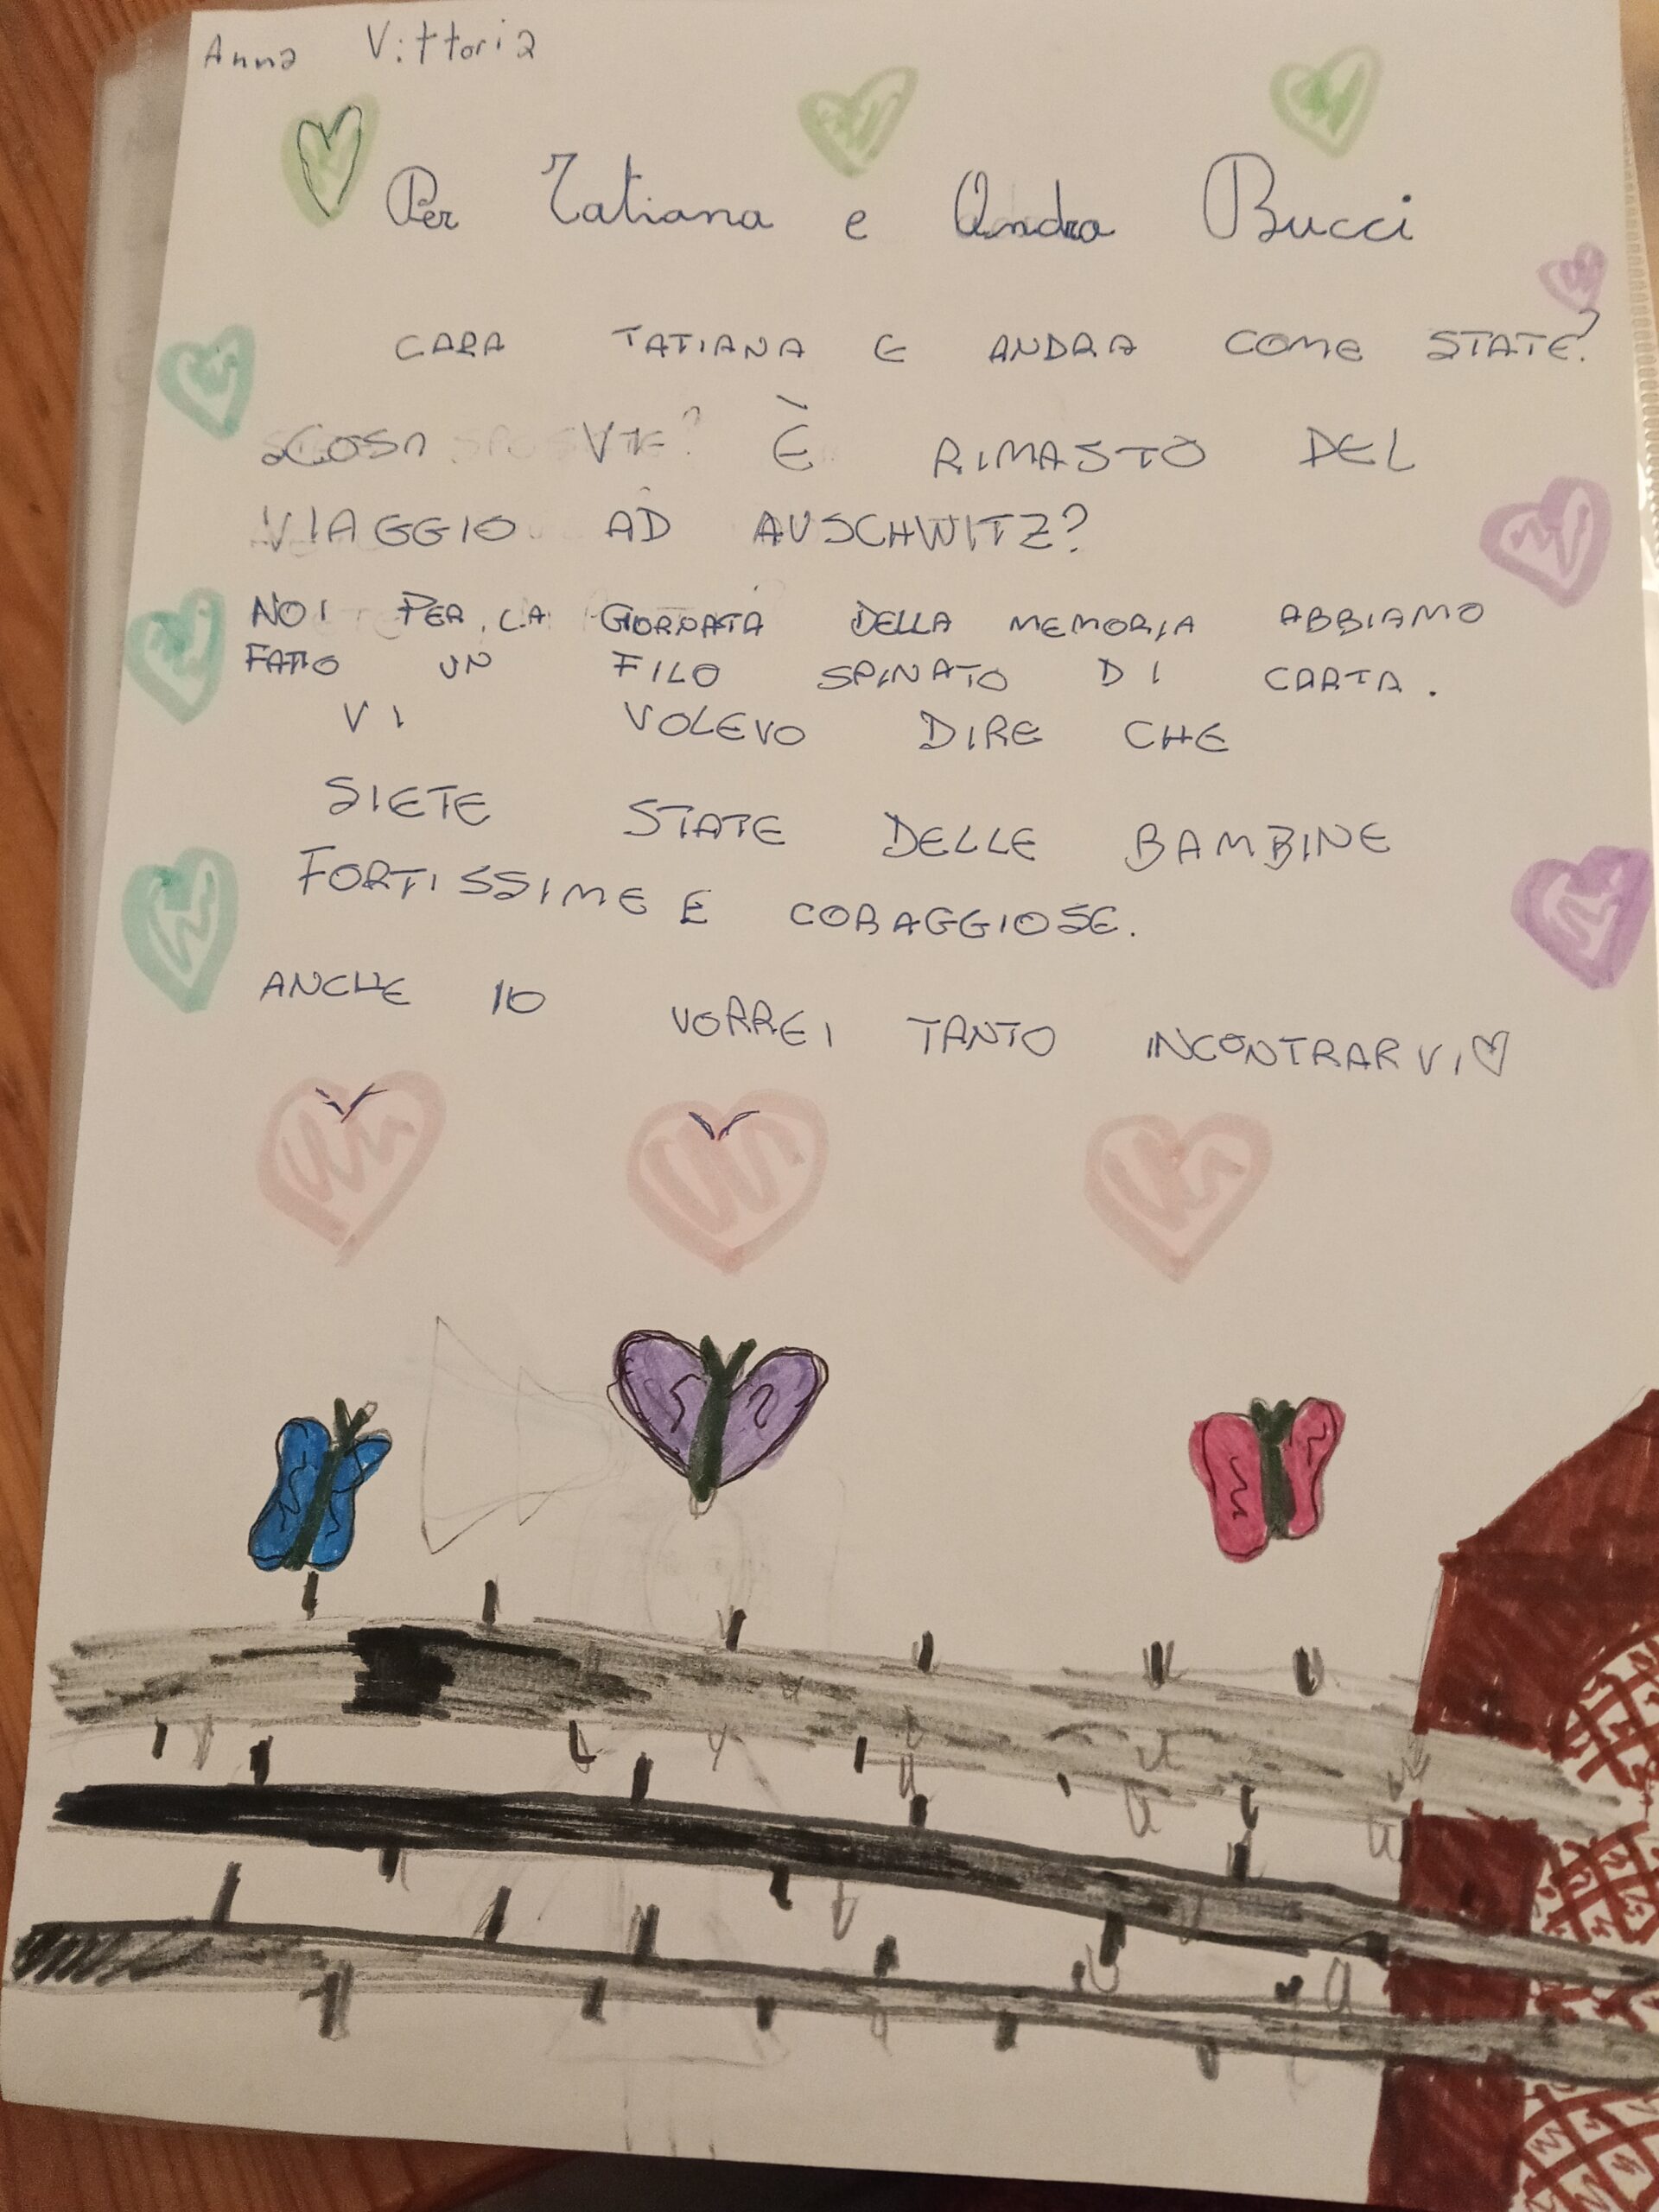 Anna Vittoria
Per Tatiana e Andra Bucci
CARA TATIANA E ANDRA COME STATE?
COSA VI È RIMASTO DEL
VIAGGIO AD AUSCHWITZ?
NOI PER LA GIORNATA DELLA MEMORIA ABBIAMO
FATTO UN FILO SPINATO DI CARTA.
VI VOLEVO DIRE CHE
SIETE STATE DELLE BAMBINE
FORTISSIME E CORAGGIOSE.
ANCHE IO VORREI TANTO INCONTRARVI♡